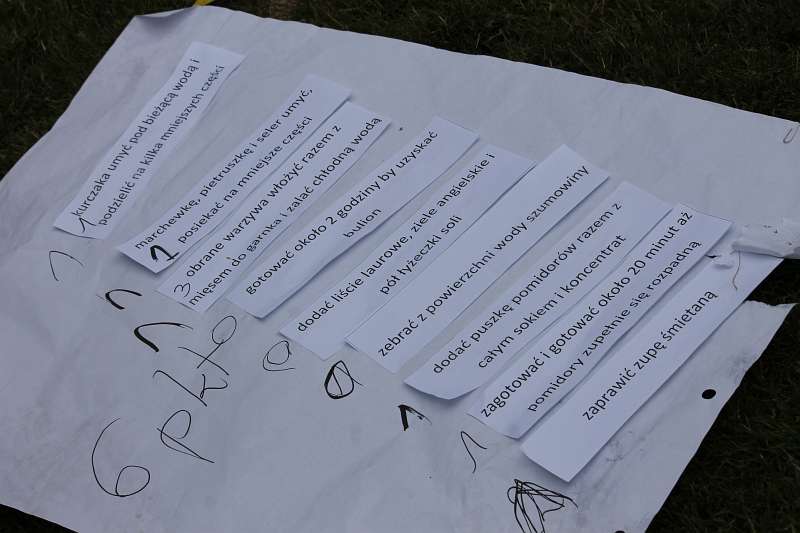 kurczaka umyć pod bieżącą wodą i
1 podzielić na kilka mniejszych części
marchewkę, pietruszkę i seler umyć,
1 posiekać na mniejsze części
3 obrane warzywa włożyć razem z
mięsem do garnka i zalać chłodną wodą
gotować około 2 godziny by uzyskać
bulion
dodać liście laurowe, ziele angielskie i
pół łyżeczki soli
zebrać z powierzchni wody szumowiny
dodać puszkę pomidorów razem z
całym sokiem i koncentrat
zagotować i gotować około 20 minut aż
pomidory zupełnie się rozpadną
zaprawić zupę śmietaną
1
1
1
0
0
1
1
6 pkt